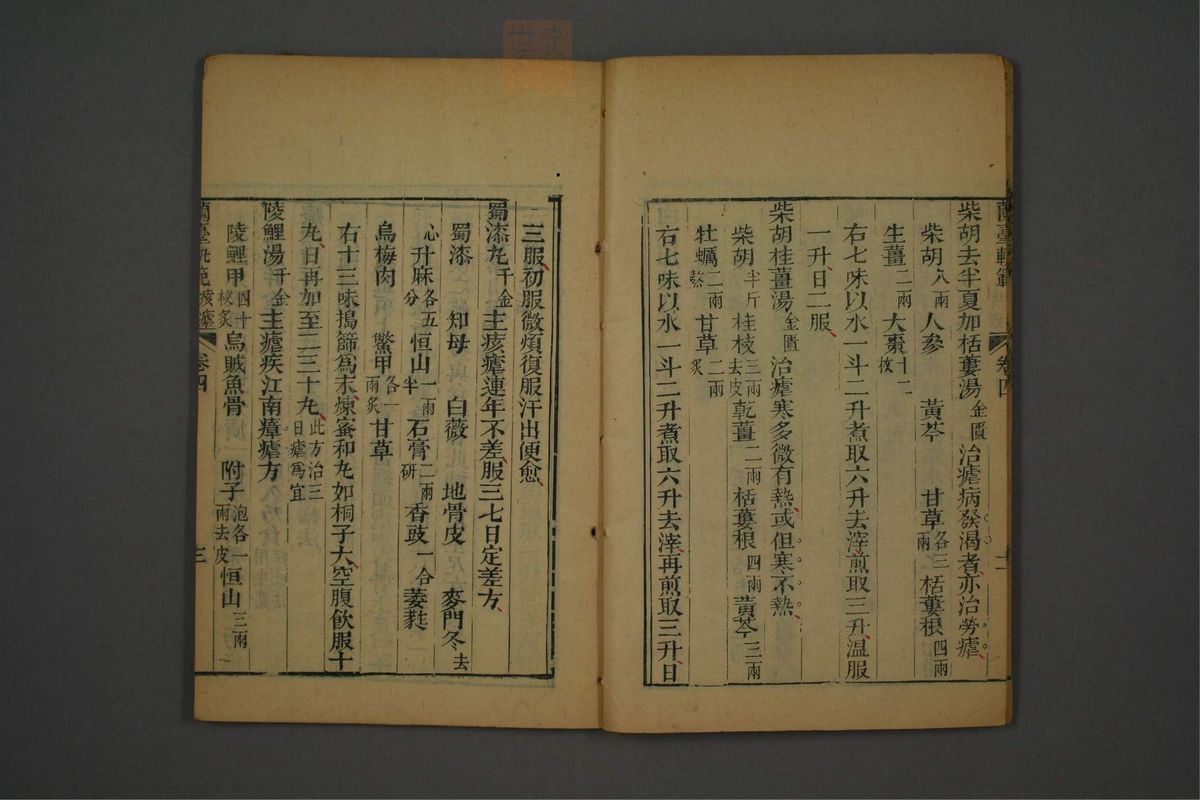 蘭臺軌範 卷四 二
柴胡去半夏加栝蔞湯金匱治瘧病發渴者亦治勞瘧
柴胡八兩人參 黃芩 甘草各三兩栝蔞根四兩
生薑二兩大棗十二枚
右七味以水一斗二升煮取六升去滓煎取三升溫服
一升日二服
柴胡桂薑湯金匱治瘧寒多微有熱或但寒不熱
柴胡半斤桂枝三兩去皮乾薑二兩栝蔞根四兩黃芩三兩
牡蠣二兩熬甘草二兩炙
右七味以水一斗二升煮取六升去滓再煎取三升日
三服初服微煩復服汗出便愈
蜀漆丸千金主痎瘧連年不差服三七日定差方
蜀漆 知母 白薇 地骨皮 麥門冬去
心升麻各五分恒山一兩半石膏二兩研香豉一合萎蕤
烏梅肉 鱉甲各一兩炙甘草
右十三味搗篩爲末煉蜜和丸如桐子大空腹飲服十
丸日再加至二三十丸此方治三日瘧爲宜
陵鯉湯千金主瘧疾江南瘴瘧方
陵鯉甲四十枚炙烏賊魚骨 附子泡各一兩去皮恒山三兩
蘭臺軌範 痎瘧 卷四 三